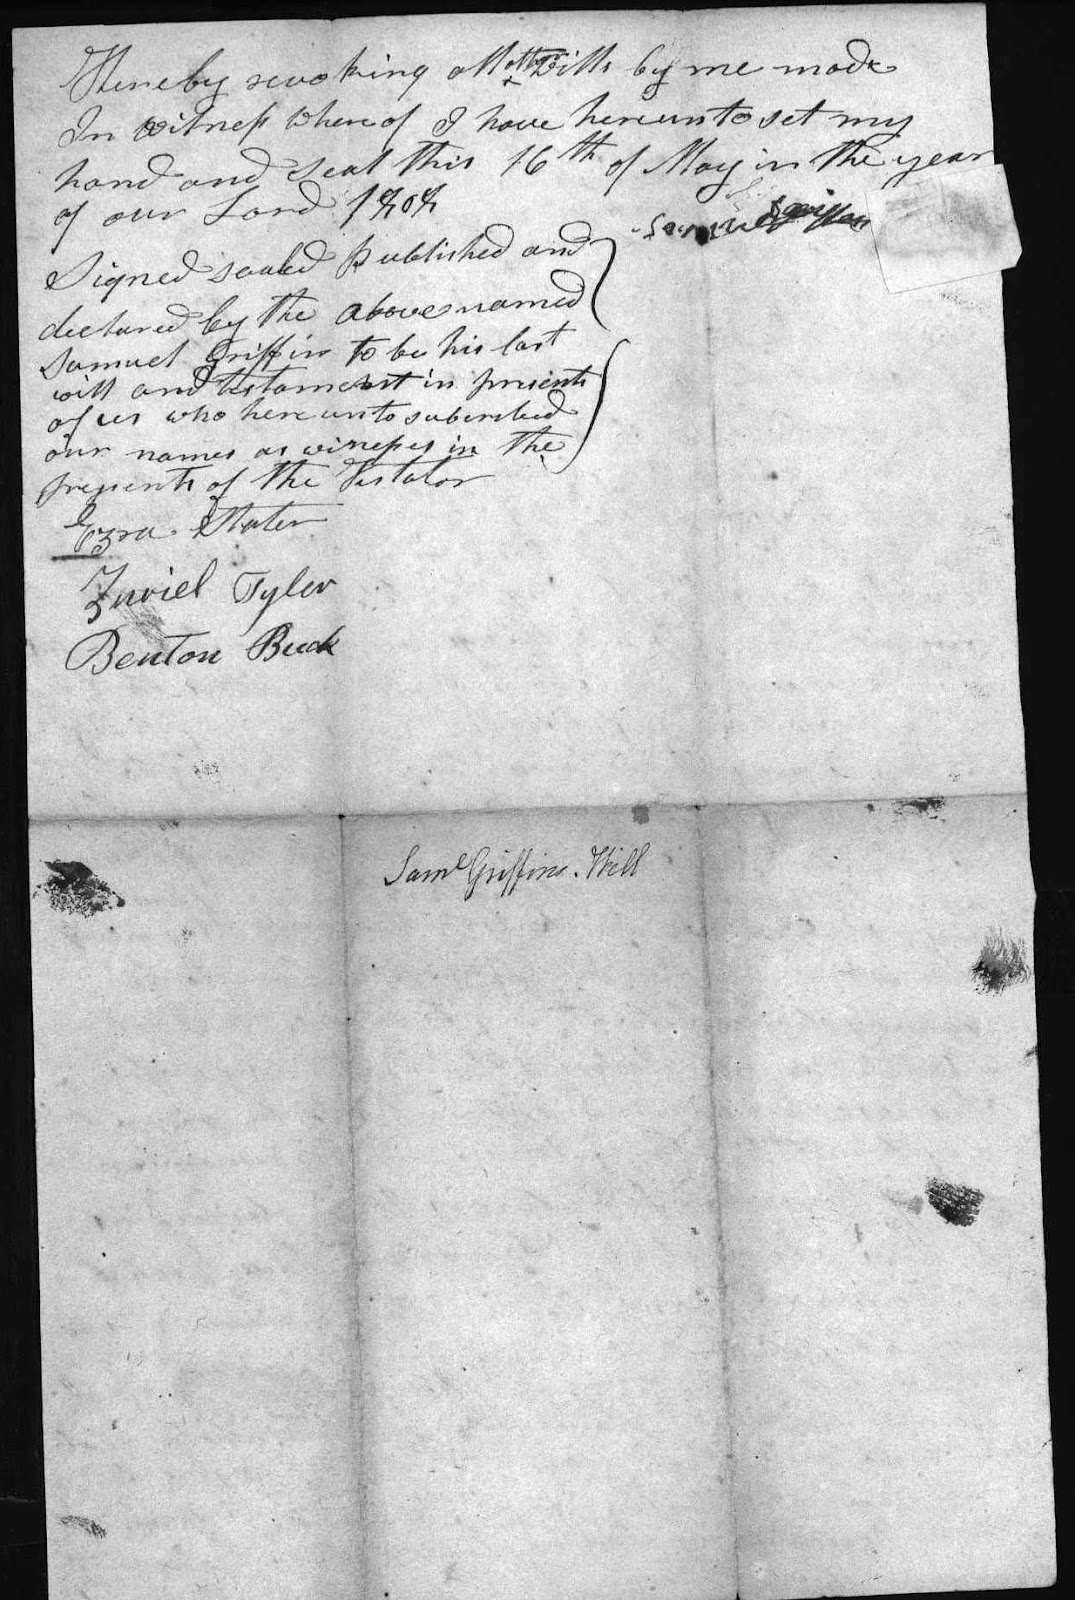 Hereby revoking all other Wills by me made
In witness whereof I have hereunto set my
hand and seal this 16th of May in the year
of our Lord
Samuel Griffin
Signed sealed published and
declared by the above named
Samuel Griffin to be his last
will and testament in presents
of us who hereunto subscribed
our names as witnesses in the
presents of the Testator
Ezra Slater
Zuriel Tyler
Benton Buck
Saml Griffins. Will